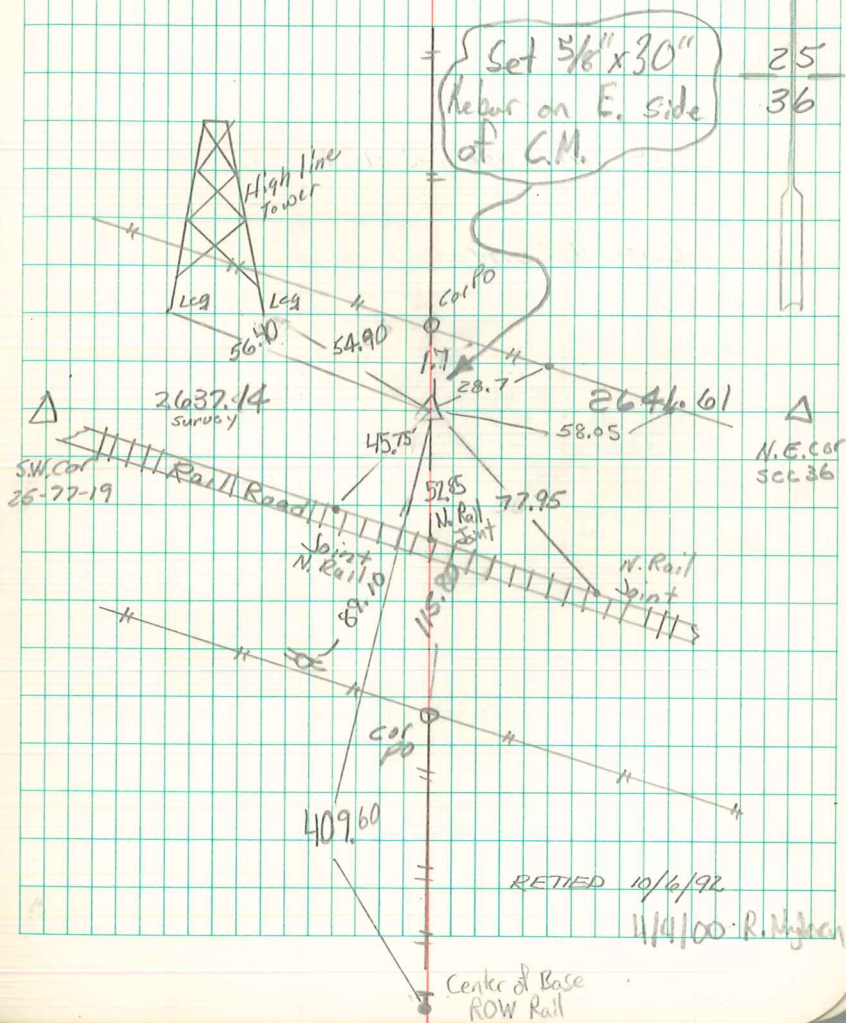 Set 5/8" x 30"
Rebar on E. side
of C.M.
25
36
High line
Tower
Leg
Leg
Cor Po
56.40
54.90
1.7
28.7
2637.14
Survey
2641.61
58.05
45.75
S.W. Cor
26-77-19
N.E. cor
Sec 36
Rail Road
52.85
N. Rail
Joint
77.95
Joint
N. Rail
N. Rail
Joint
89.10
115.80
cor
po
409.60
RETIED 10/6/92
4/4/00 R.
Center of Base
ROW Rail